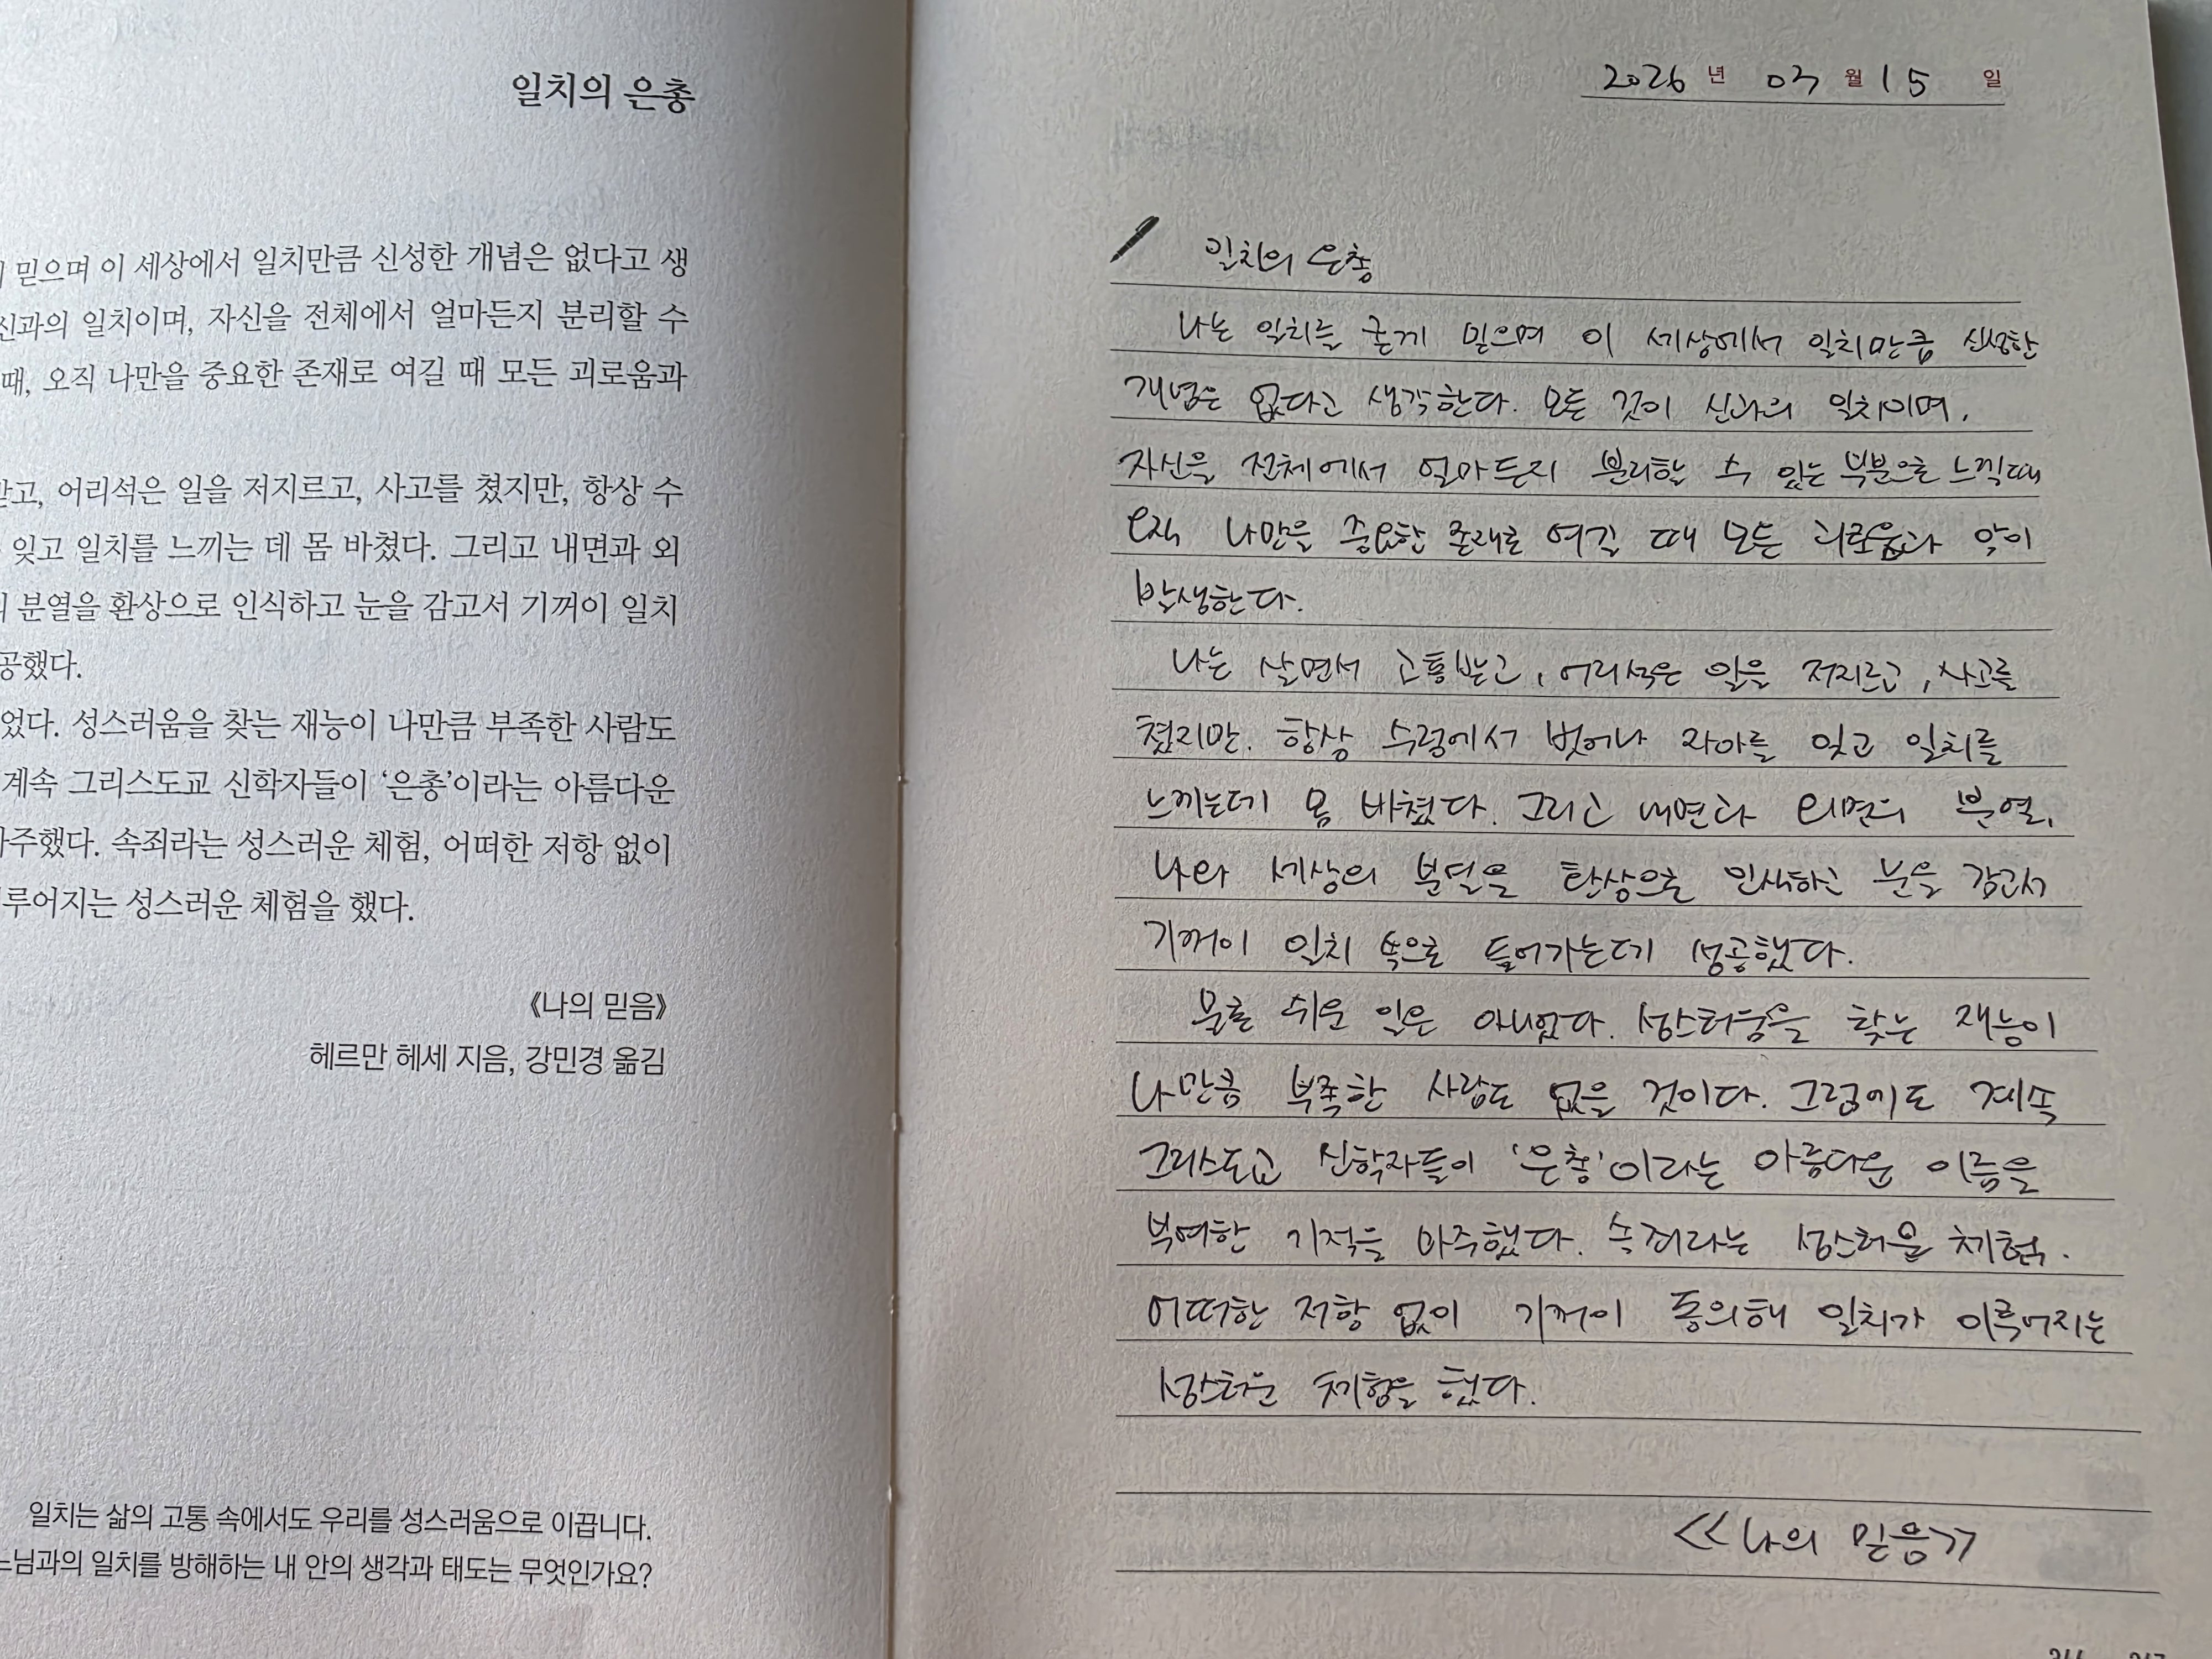 일치의 은총
믿으며 이 세상에서 일치만큼 신성한 개념은 없다고 생
신과의 일치이며, 자신을 전체에서 얼마든지 분리할 수
때, 오직 나만을 중요한 존재로 여길 때 모든 괴로움과
받고, 어리석은 일을 저지르고, 사고를 쳤지만, 항상 수
잊고 일치를 느끼는 데 몸 바쳤다. 그리고 내면과 외
분열을 환상으로 인식하고 눈을 감고서 기꺼이 일치
공했다.
었다. 성스러움을 찾는 재능이 나만큼 부족한 사람도
계속 그리스도교 신학자들이 '은총'이라는 아름다운
마주했다. 속죄라는 성스러운 체험, 어떠한 저항 없이
루어지는 성스러운 체험을 했다.
《나의 믿음》
헤르만 헤세 지음, 강민경 옮김
일치는 삶의 고통 속에서도 우리를 성스러움으로 이끕니다.
느님과의 일치를 방해하는 내 안의 생각과 태도는 무엇인가요?
2026 년 03 월 15 일
일치의 은총
나는 일치를 굳게 믿으며 이 세상에서 일치만큼 신성한
개념은 없다고 생각한다. 모든 것이 신과의 일치이며,
자신을 전체에서 얼마든지 분리할 수 있는 부분으로 느낄때
오직 나만을 중요한 존재로 여길 때 모든 괴로움과 악이
발생한다.
나는 살면서 고통받고, 어리석은 일을 저지르고, 사고를
쳤지만. 항상 수렁에서 벗어나 자아를 잊고 일치를
느끼는데 몸 바쳤다. 그리고 내면과 외면의 분열,
나와 세상의 분열을 환상으로 인식하고 눈을 감고서
기꺼이 일치 속으로 들어가는데 성공했다.
물론 쉬운 일은 아니었다. 성스러움을 찾는 재능이
나만큼 부족한 사람도 없을 것이다. 그럼에도 계속
그리스도교 신학자들이 '은총'이라는 아름다운 이름을
부여한 기적을 마주했다. 속죄라는 성스러운 체험.
어떠한 저항 없이 기꺼이 동의해 일치가 이루어지는
성스러운 체험을 했다.
<<나의 믿음>>